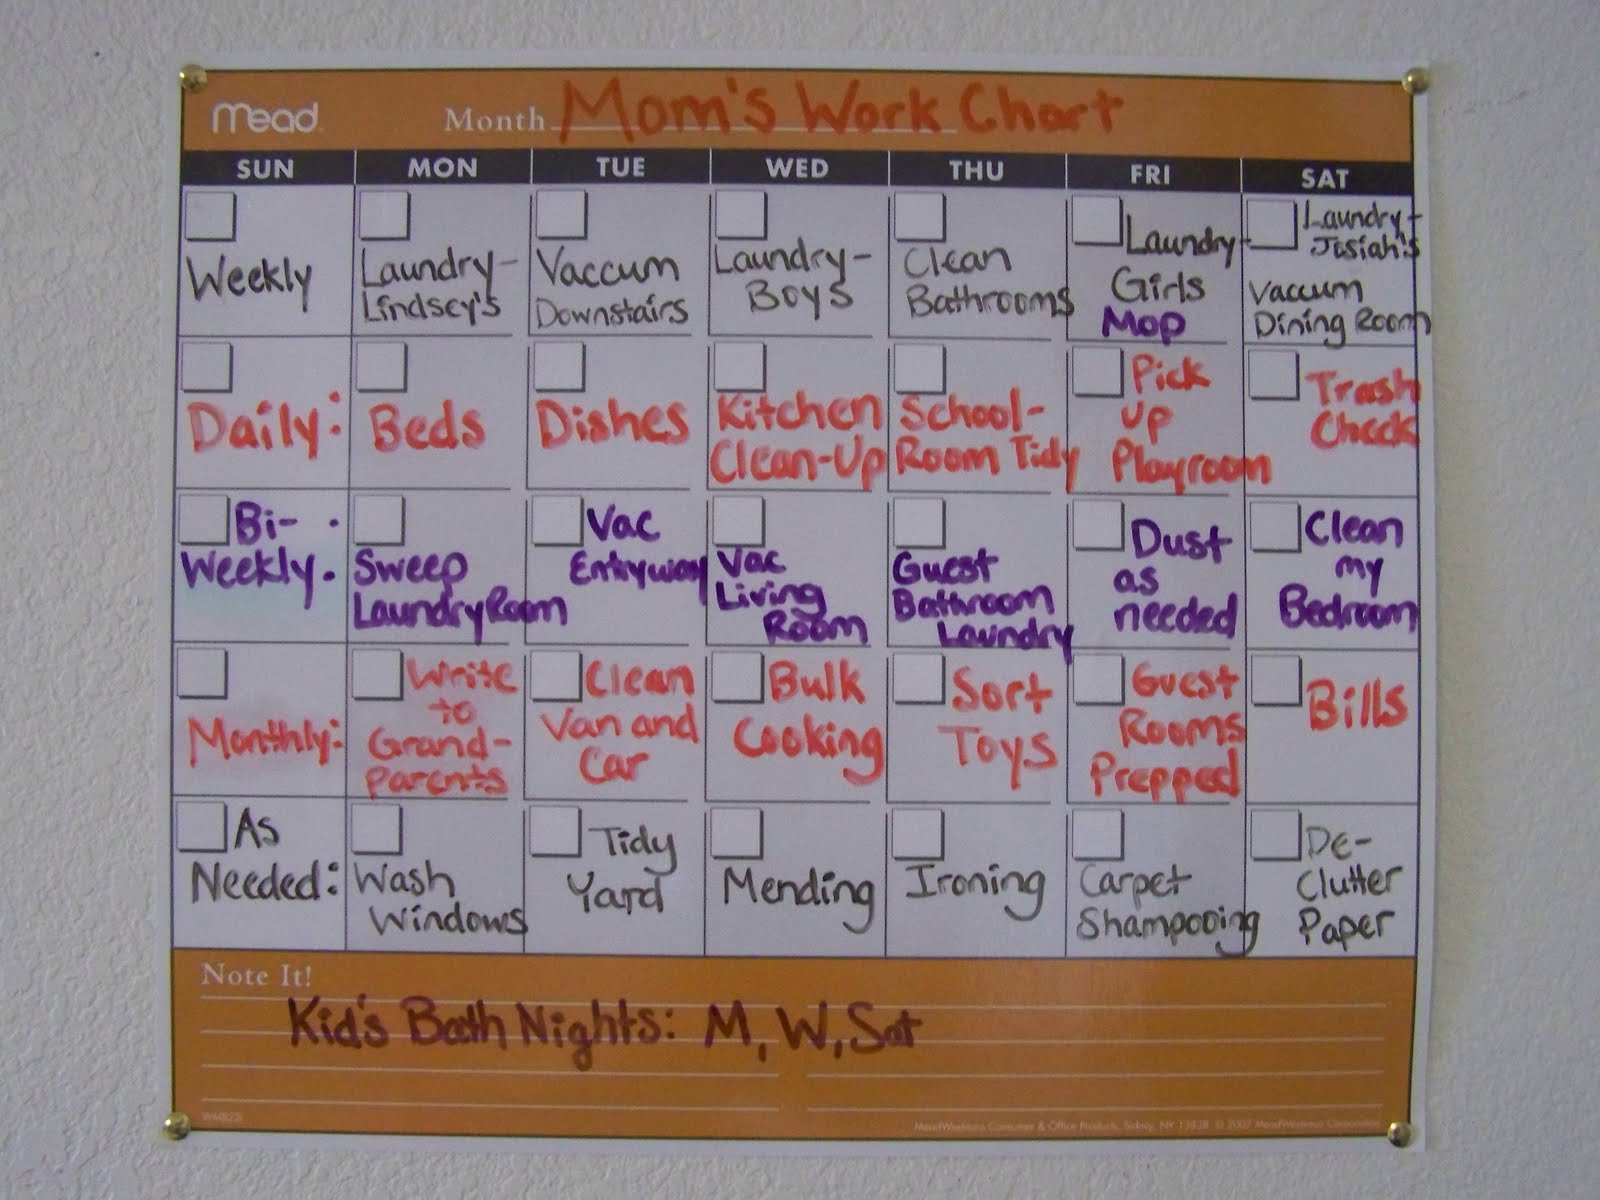 mead
Month Mom's Work Chart
SUN MON TUE WED THU FRI SAT
Weekly
Laundry-
Lindsey's
Vaccum
Downstairs
Laundry-
Boys
Clean
Bathrooms
Laundry-
Girls
Mop
Laundry-
Josiah's
Vaccum
Dining Room
Daily:
Beds
Dishes
Kitchen
Clean-Up
School-
Room Tidy
Pick
Up
Playroom
Trash
Check
Bi-
Weekly.
Sweep
Laundry Room
Vac
Entryway
Vac
Living
Room
Guest
Bathroom
Laundry
Dust
as
needed
Clean
my
Bedroom
Monthly:
Write
to
Grand-
parents
Clean
Van and
Car
Bulk
Cooking
Sort
Toys
Guest
Rooms
Prepped
Bills
As
Needed:
Wash
Windows
Tidy
Yard
Mending
Ironing
Carpet
Shampooing
De-
Clutter
Paper
Note It!
Kid's Bath Nights: M, W, Sat
MeadWestvaco Consumer & Office Products, Sidney, NY 13838 © 2007 MeadWestvaco Corporation